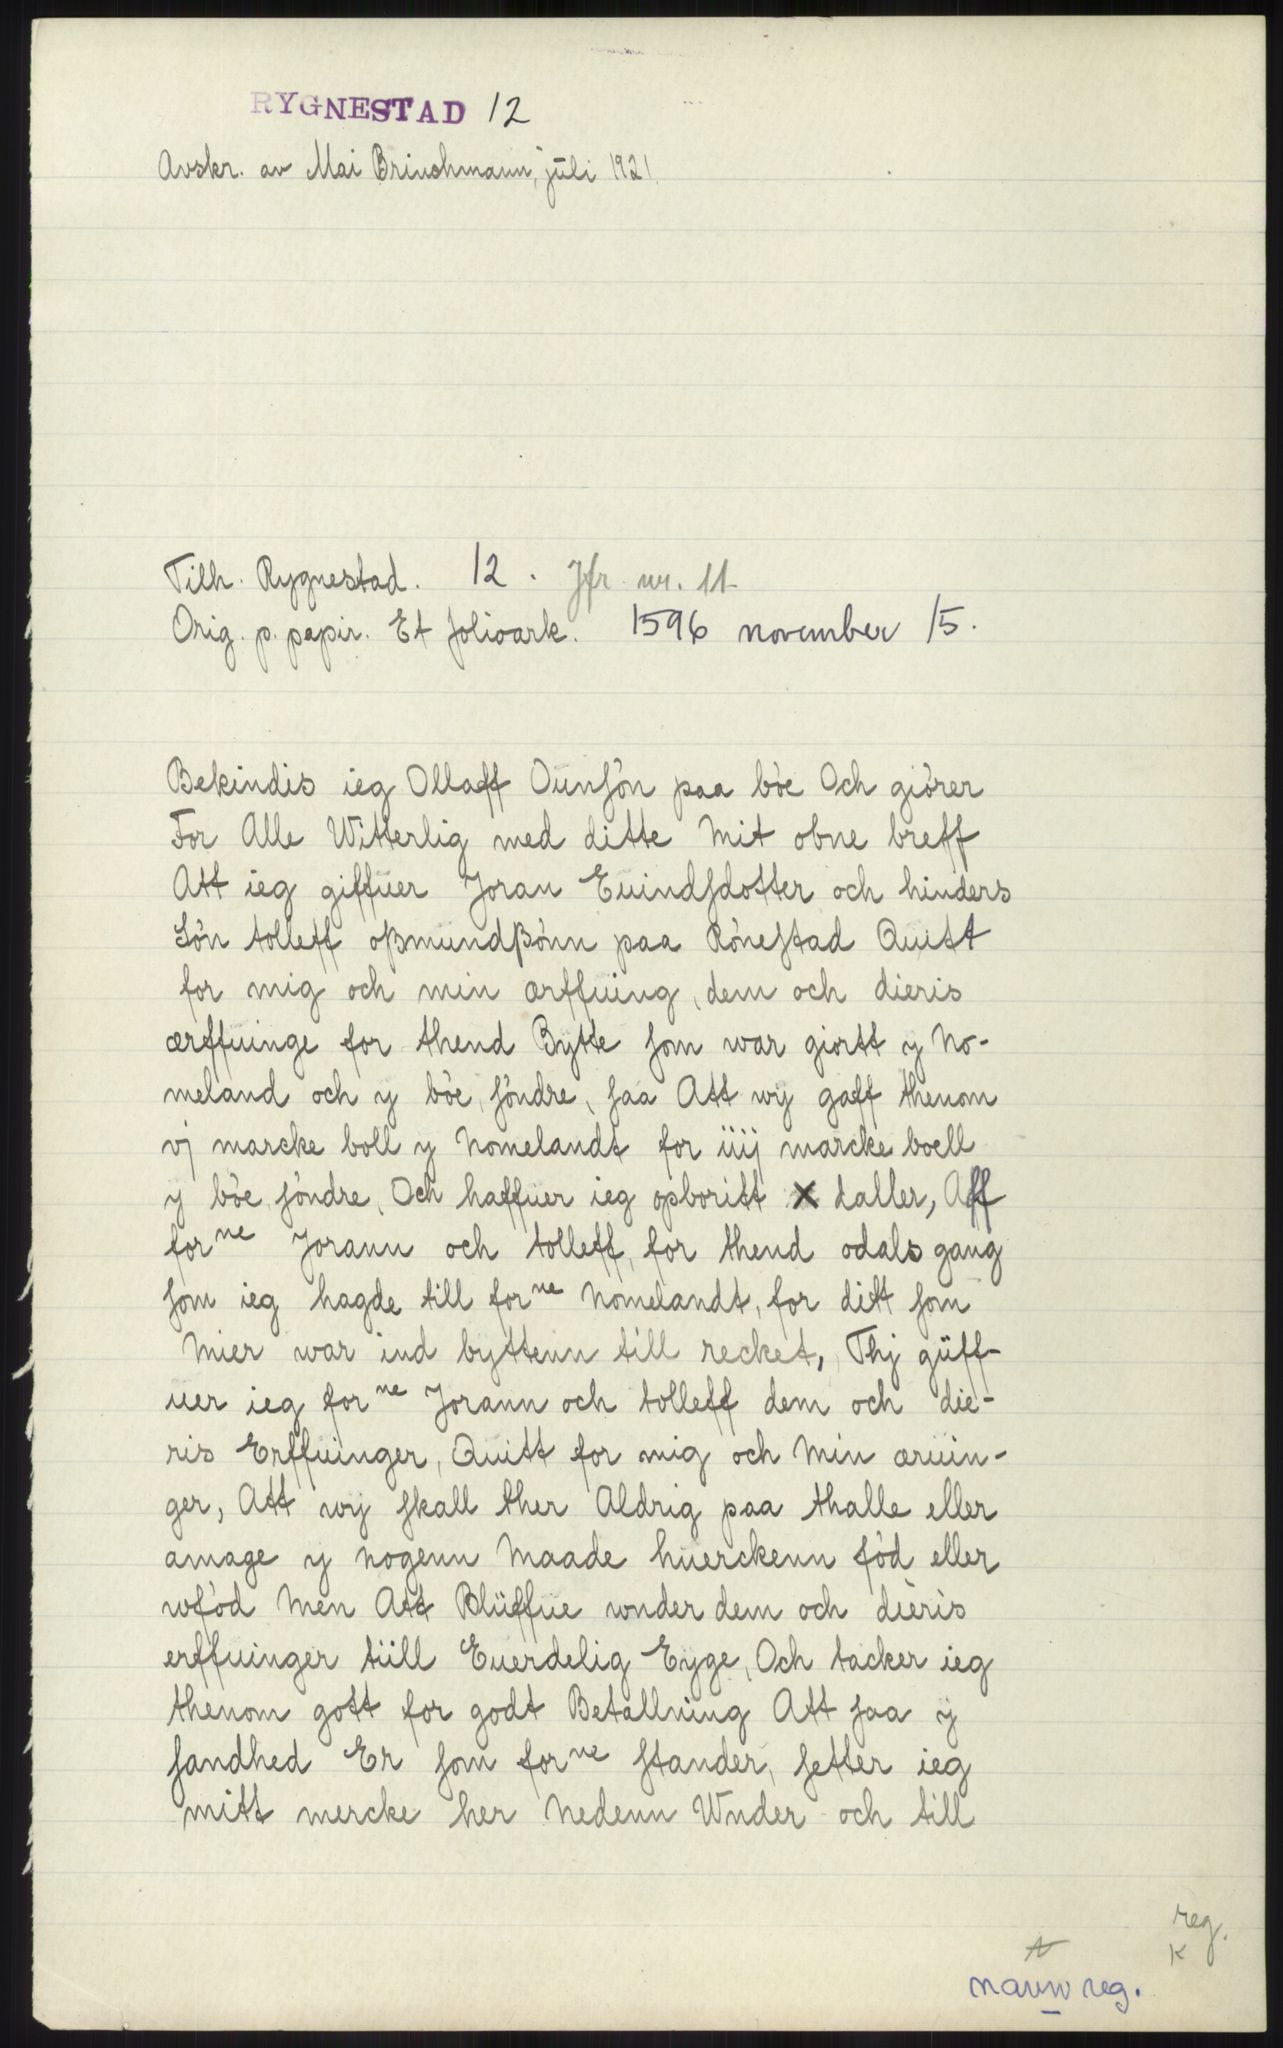 RYGNESTAD 12
Avskr. av Mai Brinchmann, juli 1921.
Tilh. Rygnestad. 12. Jfr nr. 11
Orig. p. papir. Et folioark. 1596 november 15.
Bekindis ieg Ollaff Ounsón paa bóe Och giórer
For Alle Witterlig med ditte Mit obne breff
Att ieg giffuer Joran Euindsdotter och hinders
Són tolleff oßmundßónn paa Rónestad Quitt
for mig och min ærffuing, dem och dieris
ærffuinge for thend Bytte som war giortt y No-
meland och y bóe, sóndre, saa Att wy gaff thenom
vj marcke boll y Nomelandt for iiij marcke boell
y bóe sóndre, Och haffuer ieg opboritt X daller, Aff
forne Jorann och tolleff, for thend odals gang
som ieg hagde till forne Nomelandt, for ditt som
Mier war ind byttenn till recket, Thj güff-
uer ieg forne Jorann och tolleff dem och die-
ris Erffuinger, Quitt for mig och Min æruin-
ger, Att wy skall ther Aldrig paa thalle eller
amage y nogenn Maade huerckenn fód eller
wfód Men Att Blüffue wnder dem och dieris
erffuinger tüll Euerdelig Eyge, Och tacker ieg
thenom gott for godt Betallning Att saa y
sandhed Er som forne stander, setter ieg
mitt mercke her Nedenn Wnder och till
reg.
K
navnreg.